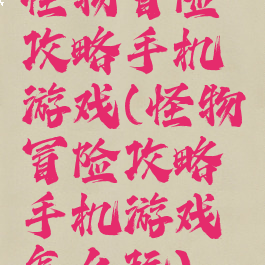 怪物冒险
攻略手机
游戏(怪物
冒险攻略
手机游戏
怎么玩)